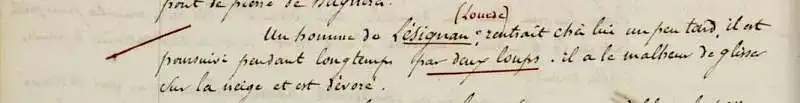 pont de pierre de
(Lourde)
Un homme de Lésignan, rentrait chez lui un peu tard, il est
poursuivi pendant longtemps par deux loups. il a le malheur de glisser
sur la neige et est dévoré.